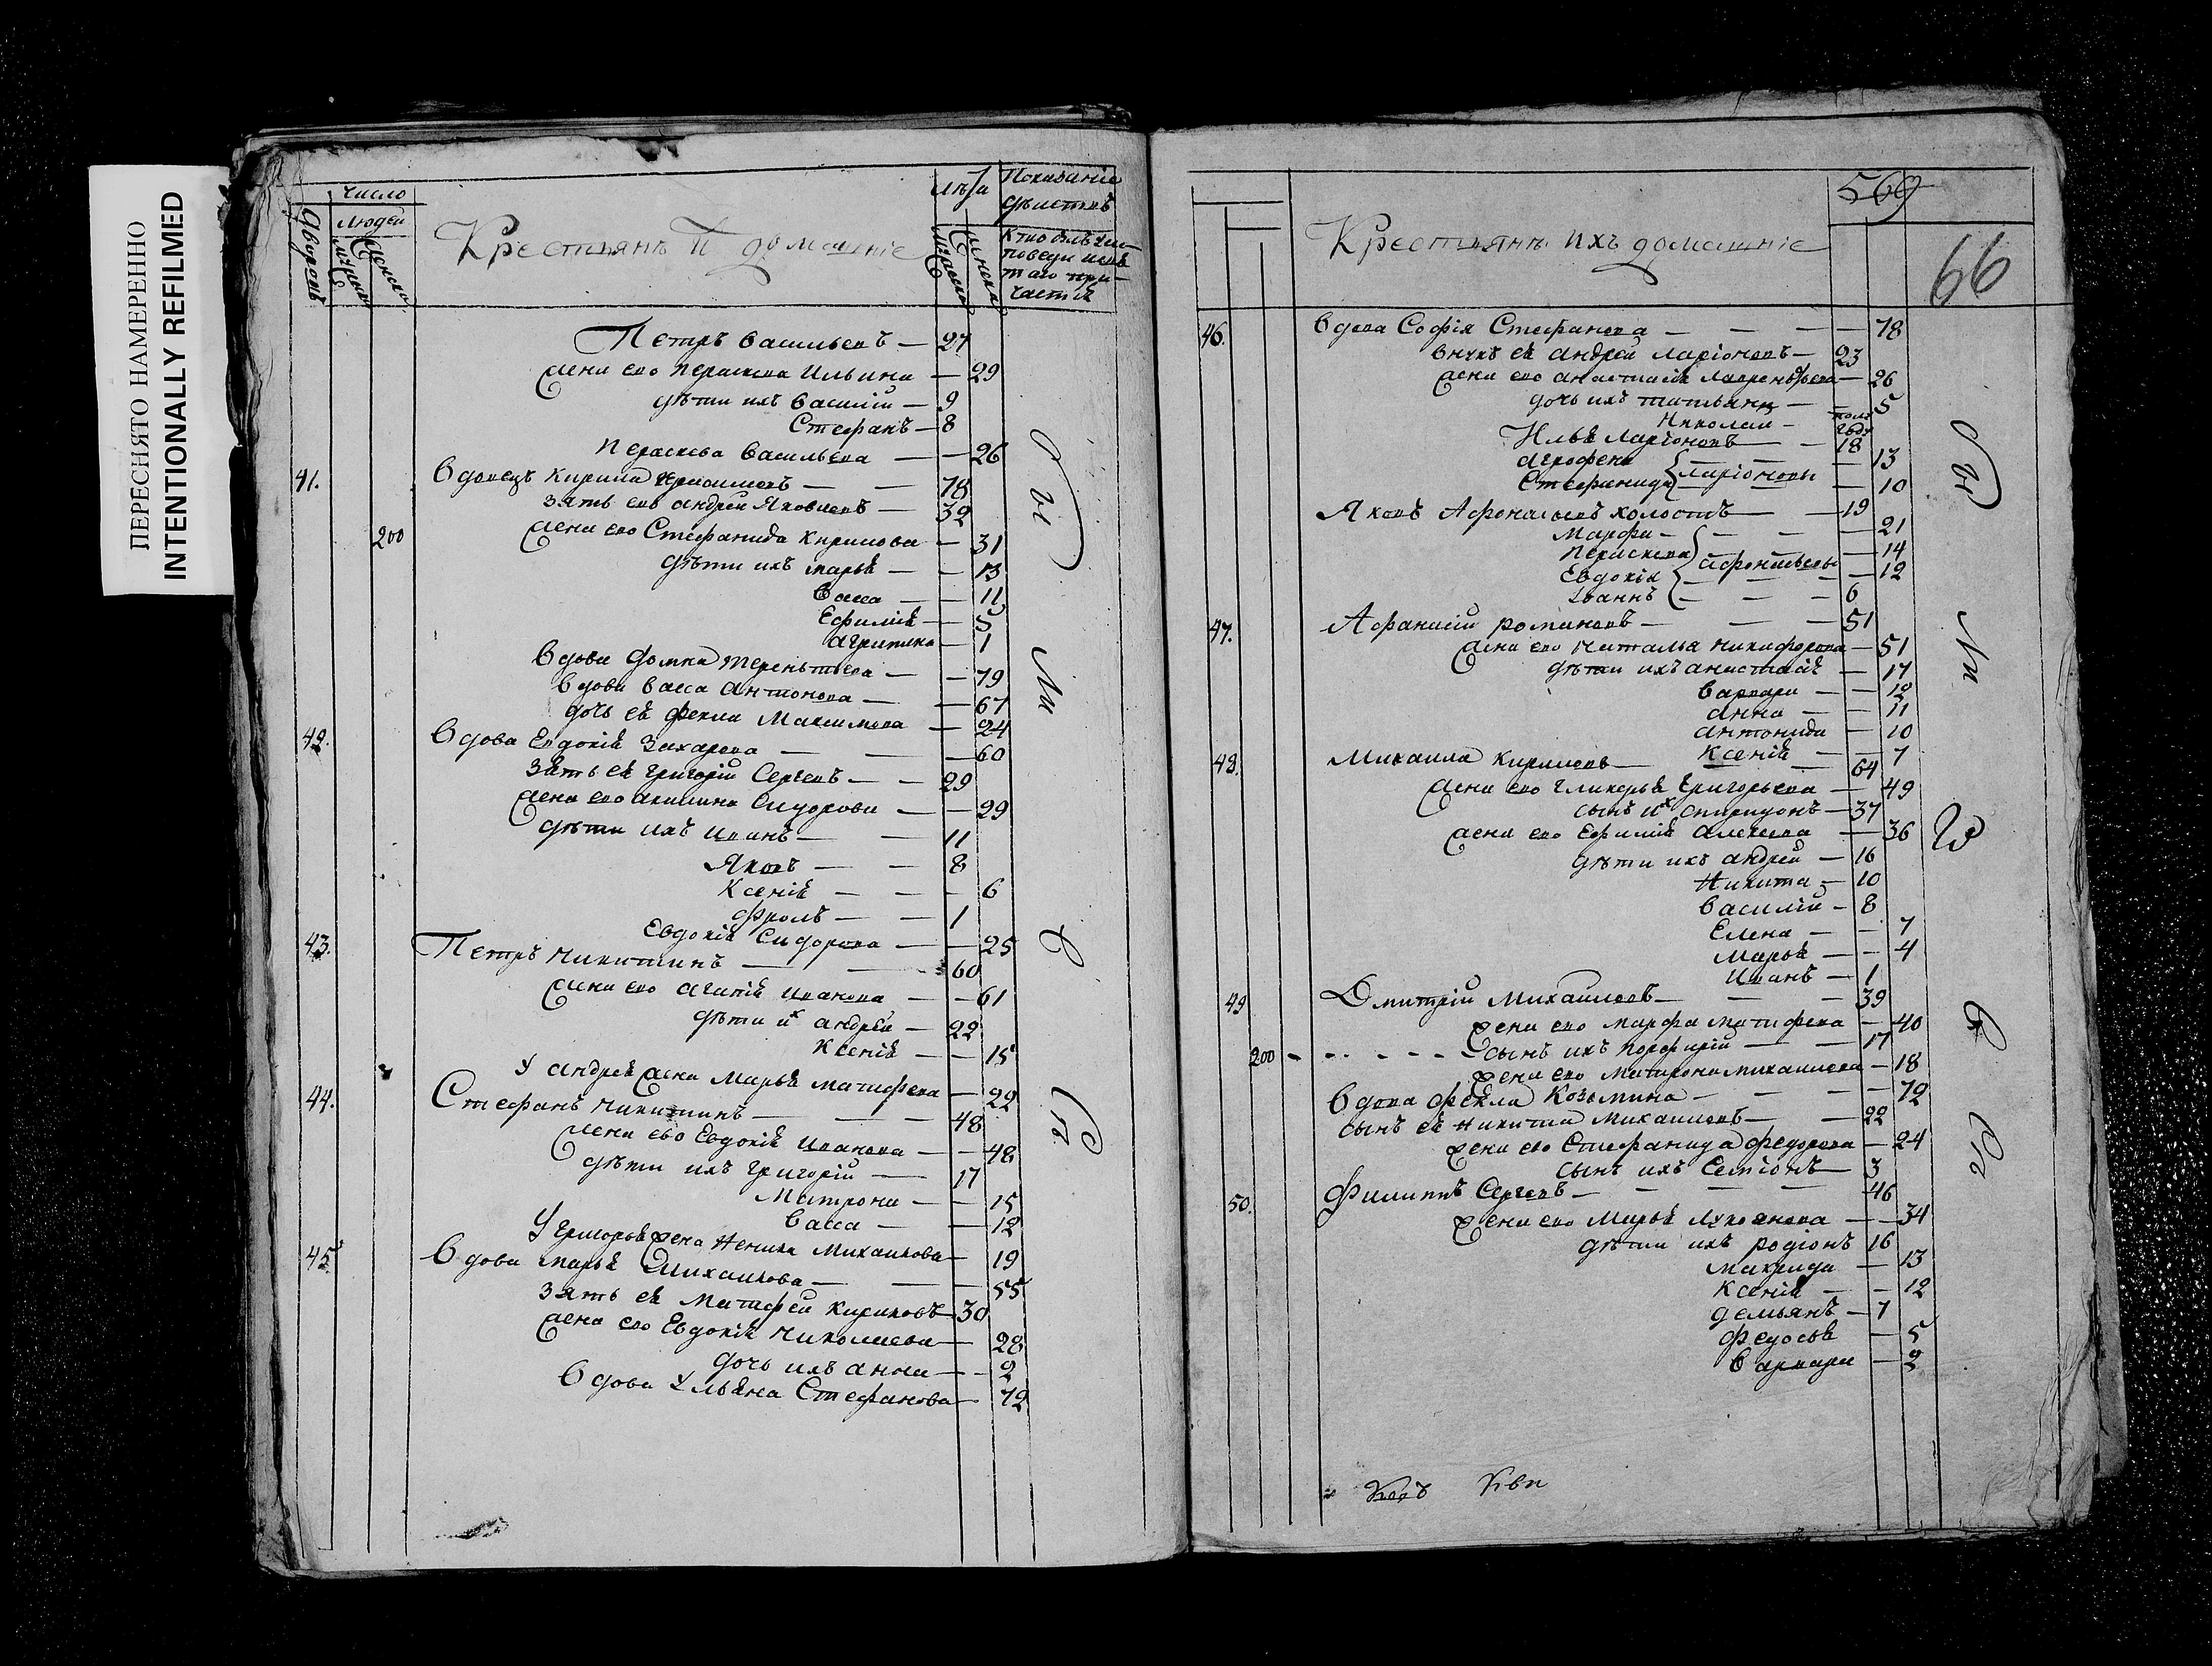 ПЕРЕСНЯТО НАМЕРЕННО
INTENTIONALLY REFILMED
число
людей
Дворовъ
мужска
женска
Крестьянъ и домашние
лѣта
мужска
женска
Показаніе
дѣиствъ
кто былъ у ис-
поведи и свя
таго при-
частия
Петръ васильевъ — 27
жена ево параскева Ильина — 29
дѣти ихъ василий — 9
Стефанъ — 8
Параскева васильева — 26
41. вдовецъ Кирила — 78
зять ево андрей Яковлевъ — 32
200 жена ево Стефанида Кирилова — 31
дѣти ихъ марья — 13
васса — 11
Ефимия — 5
агрипина — 1
вдова домна терентьева — 79
вдова васса антонова — 67
дочь ея фекла Максимова — 24
42. вдова Евдокия Захарова — 60
зять ея григорий Сергеевъ — 29
жена ево акилина Сидорова — 29
дѣти ихъ иванъ — 11
Яковъ — 8
Ксения — 6
фролъ — 1
Евдокия Сидорова — 25
43. Петръ никитинъ — 60
жена ево агапия иванова — 61
дѣти их андрей — 22
Ксения — 15
у андрея жена марья матфеева — 22
44. Стефанъ никитинъ — 48
жена ево Евдокия иванова — 48
дѣти ихъ григорий — 17
матрона — 15
васса — 12
у григорья жена Ненила михаилова — 19
45. вдова марья михаилова — 55
зять ея матфей кириловъ — 30
жена ево Евдокия николаева — 28
дочь ихъ анна — 2
вдова ульяна Стефанова — 72
Крестьянъ ихъ домашние
569
66
46. вдова София Стефанова — 78
внукъ ея андрей ларіоновъ — 23
жена ево анастасия лаврентьева — 26
дочь ихъ татьяна — 5
Николай — полъ года
Илья ларионовъ — 18
агрофена — 13
Стефанида } ларіоновы — 10
Яковъ Афонасьевъ холостъ — 19
марфа — 21
параскева — 14
Евдокия } афонасьевы — 12
Іваннъ — 6
47. Афанасий романовъ — 51
жена ево наталья никифорова — 51
дѣти ихъ анастасия — 17
варвара — 12
анна — 11
антонида — 10
Ксения — 7
48. Михаила кириловъ — 64
жена ево гликерья григорьева — 49
сынъ их спиридонъ — 37
жена ево Ефимия алексеева — 36
дѣти ихъ андрей — 16
Никита — 10
василий — 8
Елена — 7
марья — 4
иванъ — 1
49 Дмитрій михаиловъ — 39
жена ево марфа матфеева — 40
200 сынъ ихъ порфирій — 17
жена ево матрона михаилова — 18
вдова фекла Козьмина — 72
сынъ ея никита михаиловъ — 22
жена ево Стефанида федорова — 24
сынъ ихъ Семіонъ — 3
50. Филиппъ Сергеевъ — 46
жена ево марья лукоянова — 34
дѣти ихъ родіонъ 16
макрида — 13
Ксения — 12
демьянъ — 7
федосья — 5
варвара — 2